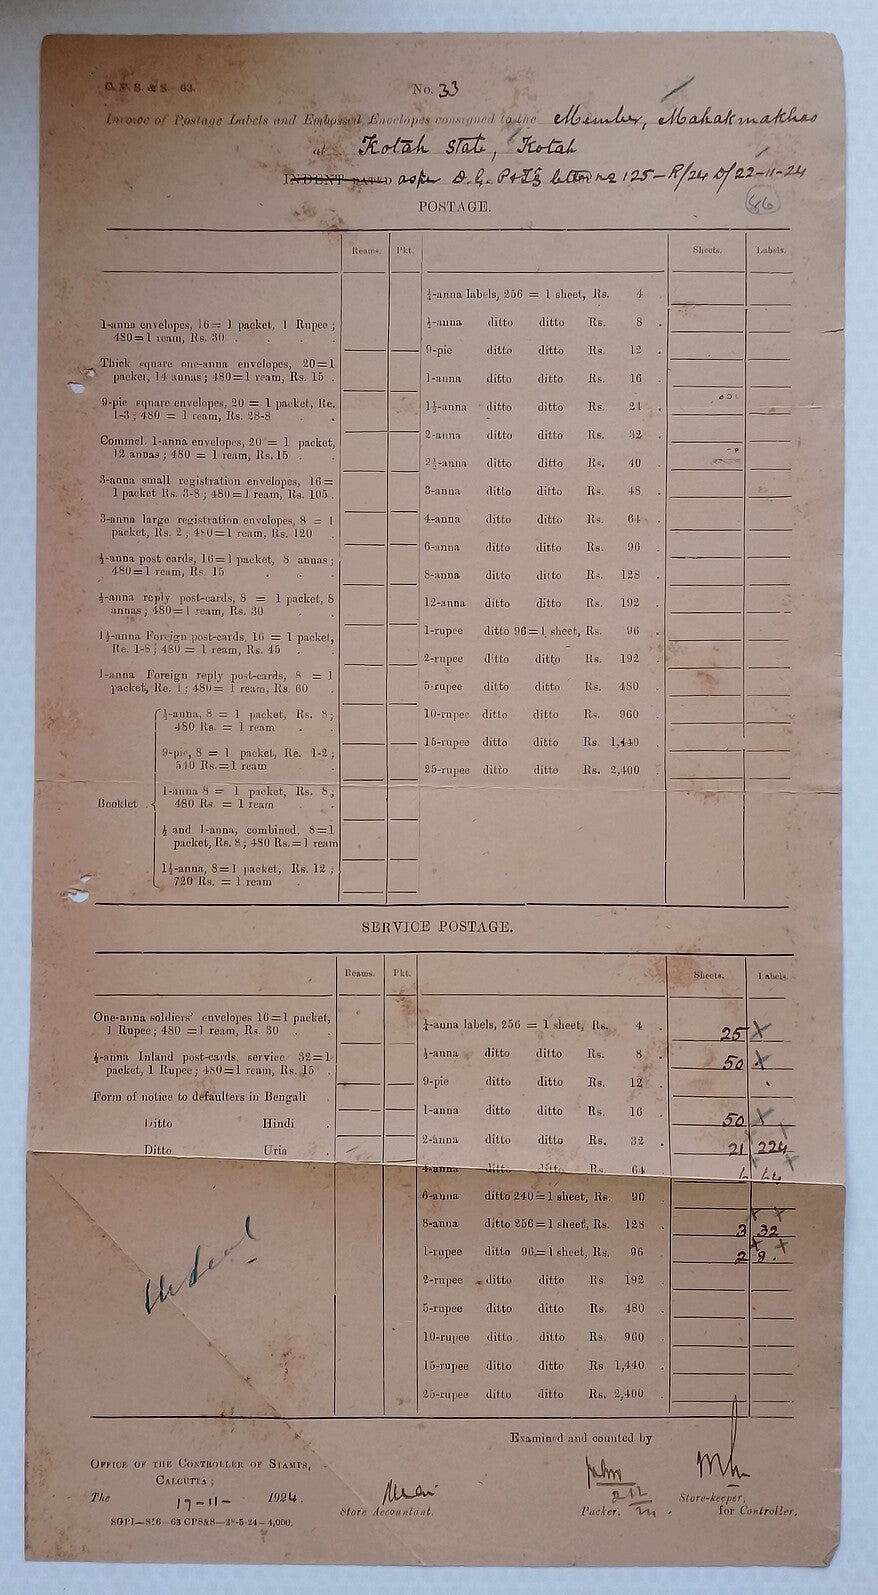 C. P. S. & S—63.
No. 33
Invoice of Postage Labels and Embossed Envelopes consigned to the Member, Mahakmakhas
at Kotah State, Kotah
INDENT DATED as per D. G. P & T's letter no 125–R/24 D/22-11-24
86
POSTAGE.
Reams. Pkt. Sheets. Labels.
1-anna envelopes, 16 = 1 packet, 1 Rupee;
480=1 ream, Rs. 30
Thick square one-anna envelopes, 20=1
packet, 14 annas; 480=1 ream, Rs. 15
9-pie square envelopes, 20 = 1 packet, Re.
1-3; 480 = 1 ream, Rs. 28-8
Commcl. 1-anna envelopes, 20 = 1 packet,
12 annas; 480 = 1 ream, Rs. 15
3-anna small registration envelopes, 16 =
1 packet Rs. 3-8; 480=1 ream, Rs. 105
3-anna large registration envelopes, 8 = 1
packet, Rs. 2; 480=1 ream, Rs. 120
½-anna post cards, 16=1 packet, 8 annas;
480=1 ream, Rs. 15
½-anna reply post-cards, 8 = 1 packet, 8
annas; 480=1 ream, Rs. 30
1½-anna Foreign post-cards, 16 = 1 packet,
Re. 1-8; 480 = 1 ream, Rs. 45
1-anna Foreign reply post-cards, 8 = 1
packet, Re. 1; 480= 1 ream, Rs. 60
Booklet
½-anna, 8 = 1 packet, Rs. 8;
480 Rs. = 1 ream
9-pie, 8 = 1 packet, Re. 1-2;
540 Rs.=1 ream
1-anna 8 = 1 packet, Rs. 8;
480 Rs. = 1 ream
½ and 1-anna, combined, 8=1
packet, Rs. 8; 480 Rs.=1 ream
1½-anna, 8=1 packet, Rs. 12;
720 Rs. = 1 ream
¼-anna labels, 256 = 1 sheet, Rs. 4
½-anna ditto ditto Rs. 8
9-pie ditto ditto Rs. 12
1-anna ditto ditto Rs. 16
1½-anna ditto ditto Rs. 24
2-anna ditto ditto Rs. 32
2½-anna ditto ditto Rs. 40
3-anna ditto ditto Rs. 48
4-anna ditto ditto Rs. 64
6-anna ditto ditto Rs. 96
8-anna ditto ditto Rs. 128
12-anna ditto ditto Rs. 192
1-rupee ditto 96=1 sheet, Rs. 96
2-rupee ditto ditto Rs. 192
5-rupee ditto ditto Rs. 480
10-rupee ditto ditto Rs. 960
15-rupee ditto ditto Rs. 1,440
25-rupee ditto ditto Rs. 2,400
SERVICE POSTAGE.
Reams. Pkt. Sheets. Labels.
One-anna soldiers' envelopes 16=1 packet,
1 Rupee; 480 =1 ream, Rs. 30
½-anna Inland post-cards, service 32=1
packet, 1 Rupee; 480=1 ream, Rs. 15
Form of notice to defaulters in Bengali
Ditto Hindi
Ditto Uria
¼-anna labels, 256 = 1 sheet, Rs. 4 25 ×
½-anna ditto ditto Rs. 8 50 ×
9-pie ditto ditto Rs. 12
1-anna ditto ditto Rs. 16 50 ×
2-anna ditto ditto Rs. 32 21 224
4-anna ditto ditto Rs. 64
6-anna ditto 240=1 sheet, Rs. 90
8-anna ditto 256=1 sheet, Rs. 128 3 32
1-rupee ditto 96=1 sheet, Rs. 96 2 8
2-rupee ditto ditto Rs 192
5-rupee ditto ditto Rs. 480
10-rupee ditto ditto Rs. 960
15-rupee ditto ditto Rs 1,440
25-rupee ditto ditto Rs. 2,400
Examined and counted by
OFFICE OF THE CONTROLLER OF STAMPS,
CALCUTTA;
The 17-11- 1924.
Store Accountant.
Packer.
Store-keeper,
for Controller.
SGPI—S16—63 CPS&S—28-5-24—4,000.